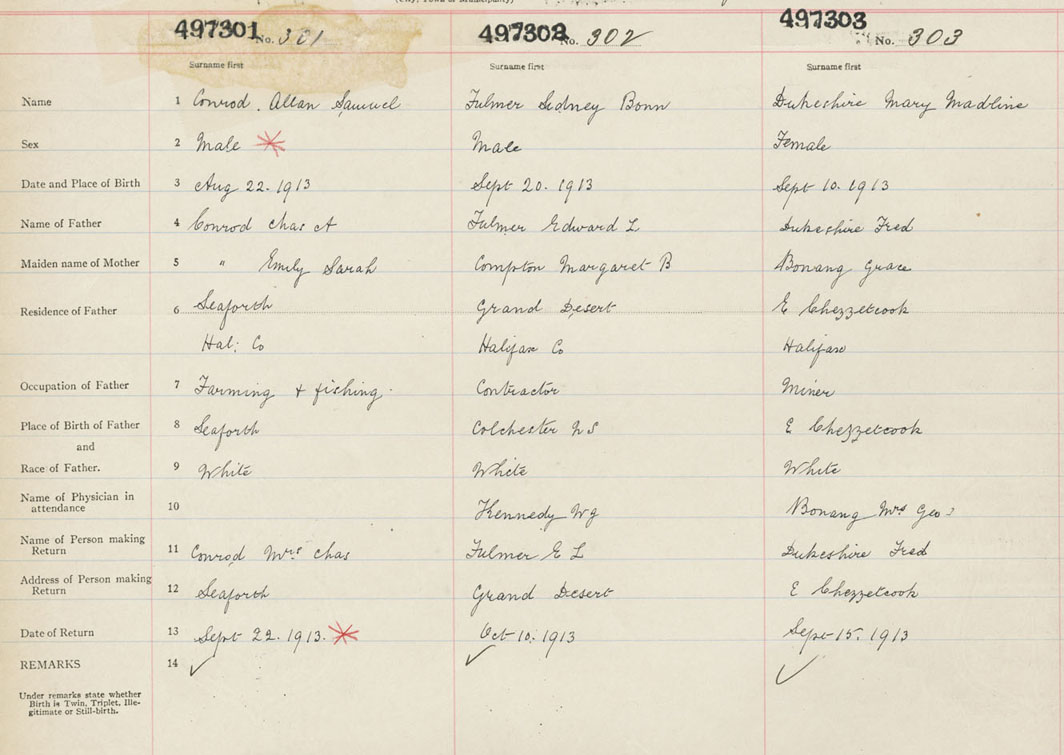 (City, Town or Municipality)
497301 No. 301 497302 No. 302 497303 No. 303
Surname first Surname first Surname first
Name 1 Conrod. Allan Samuel Fulmer Sidney Bonn Dukeshire Mary Madline
Sex 2 Male Male Female
Date and Place of Birth 3 Aug 22. 1913 Sept 20. 1913 Sept 10. 1913
Name of Father 4 Conrod Chas A Fulmer Edward L Dukeshire Fred
Maiden name of Mother 5 " Emily Sarah Compton Margaret B Bonang Grace
Residence of Father 6 Seaforth Grand Desert E Chezzetcook
Hal: Co Halifax Co Halifax
Occupation of Father 7 Farming + fishing. Contractor Miner
Place of Birth of Father 8 Seaforth Colchester N S E Chezzetcook
and
Race of Father. 9 White White White
Name of Physician in
attendance 10 Kennedy Wg Bonang Mrs Geo
Name of Person making
Return 11 Conrod Mrs Chas Fulmer E L Dukeshire Fred
Address of Person making
Return 12 Seaforth Grand Desert E Chezzetcook
Date of Return 13 Sept 22. 1913. Oct 10. 1913 Sept 15. 1913
REMARKS 14 ✓ ✓ ✓
Under remarks state whether
Birth is Twin, Triplet, Ille-
gitimate or Still-birth.